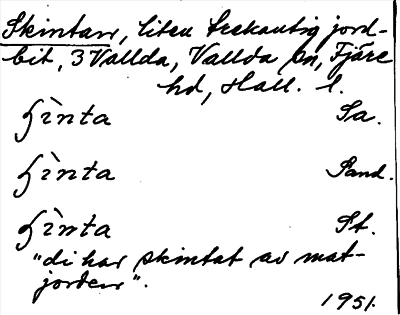 Skintan, liten trekantig jord-
bit, 3 Vallda, Vallda sn, Fjäre
hd, Hall. l.
ʃìnta Sa.
ʃìnta Sand.
ʃìnta St.
"di har skintat av mat-
jorden".
1951.